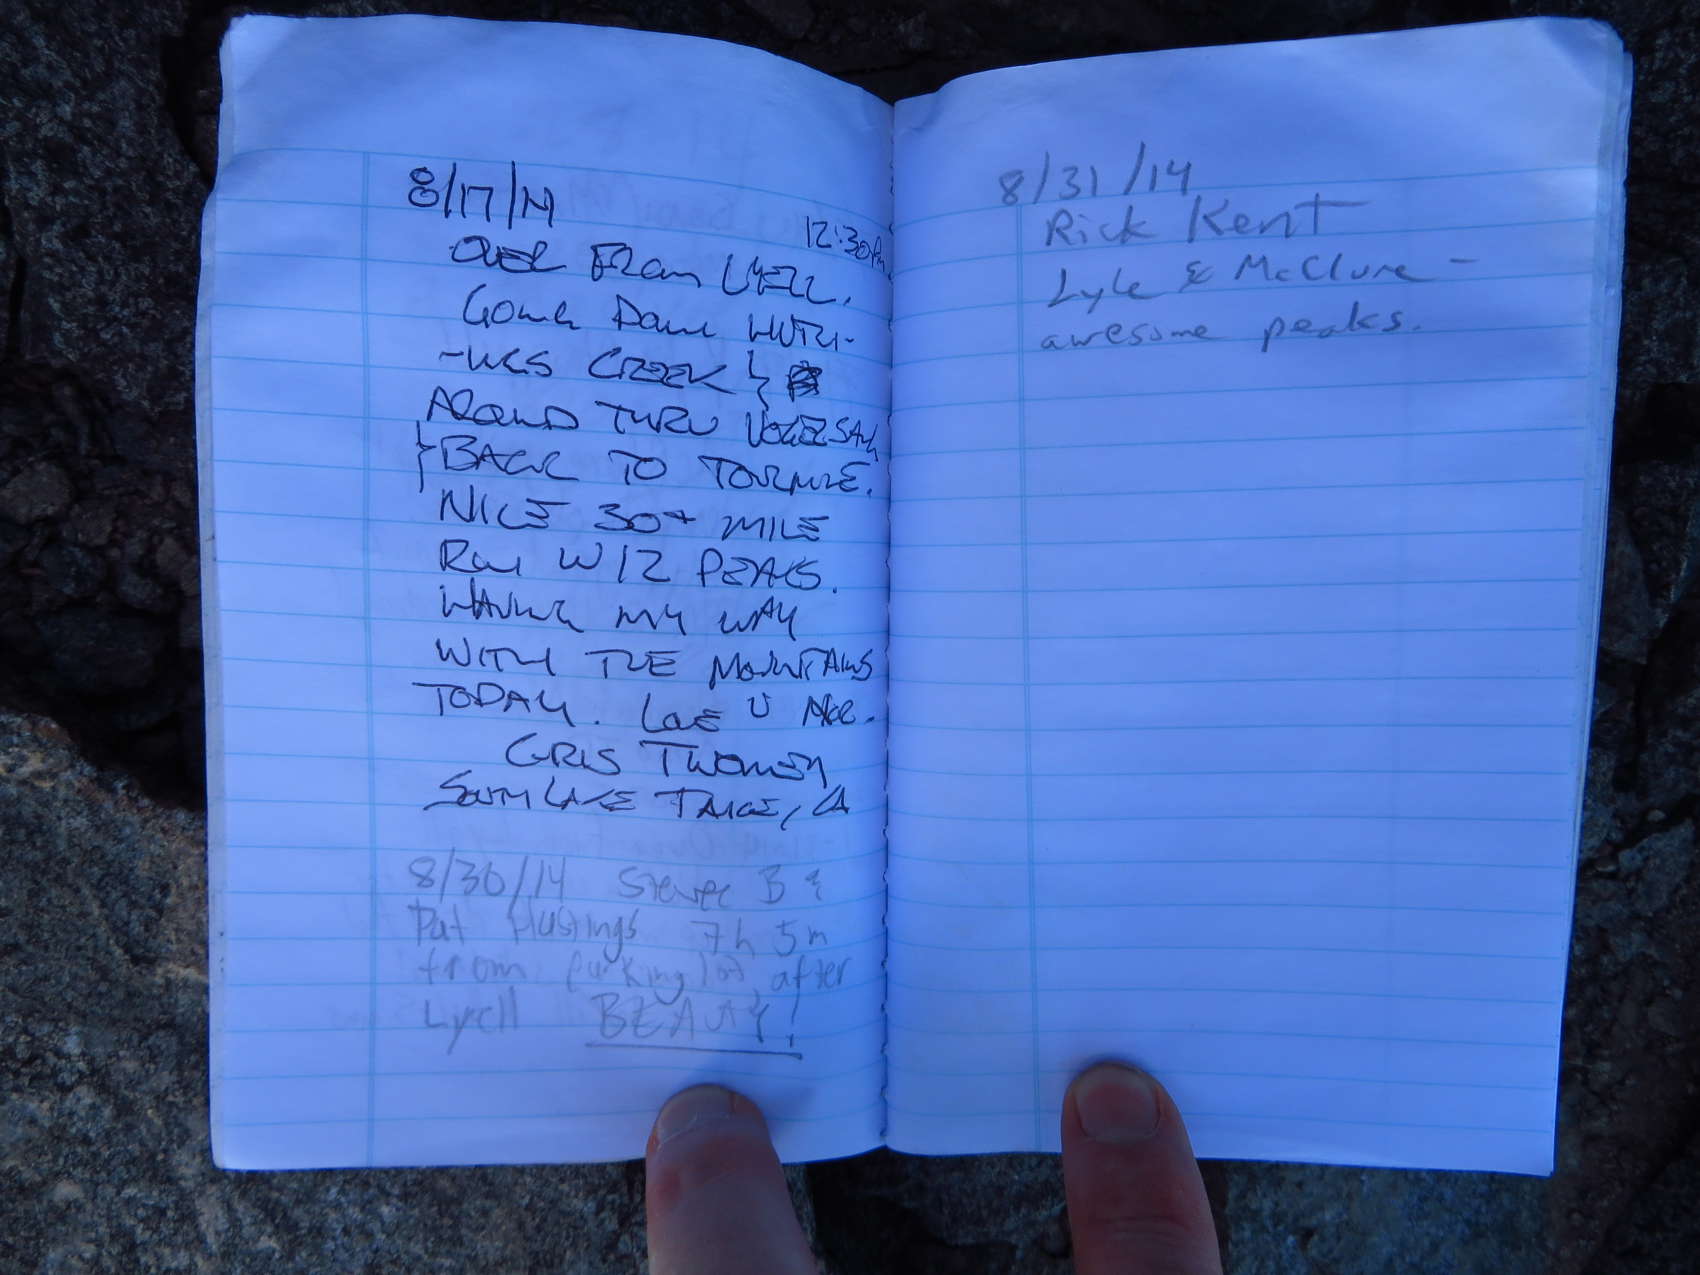 8/17/14
12:30PM
OVER FROM LYELL.
GOING DOWN HUTCH-
-INGS CREEK &
AROUND THRU VOGELSANG
& BACK TO TOULMNE.
NICE 30+ MILE
RUN W/2 PEAKS.
HAVING MY WAY
WITH THE MOUNTAINS
TODAY. LOVE U
TWOMEY
SOUTH LAKE TAHOE, CA
8/30/14 B &
Pat Hustings 7h 5m
from parking lot after
Lyell BEAUTY!
8/31/14
Rick Kent
Lyle & McClure -
awesome peaks.